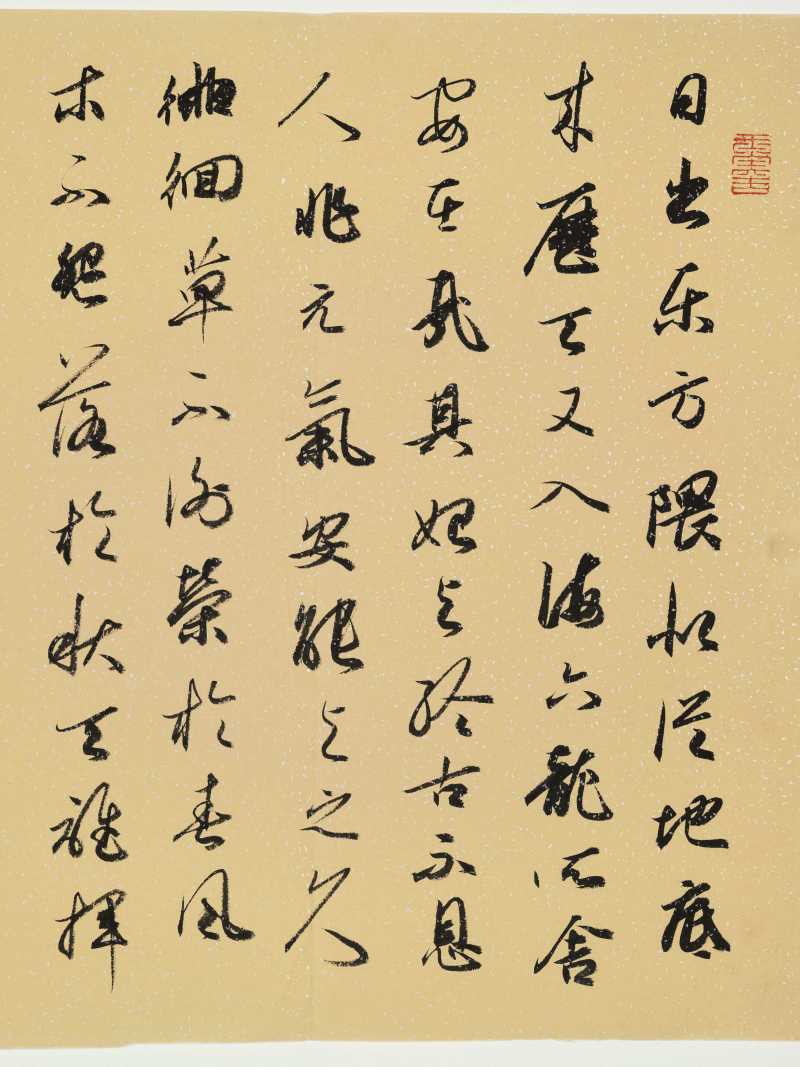 日出東方隈似從地底
來歷天又入海六龍所舍
安在哉其始与終古不息
人非元氣安能与之久
徘徊草不謝榮於春風
木不怨落於秋天誰揮